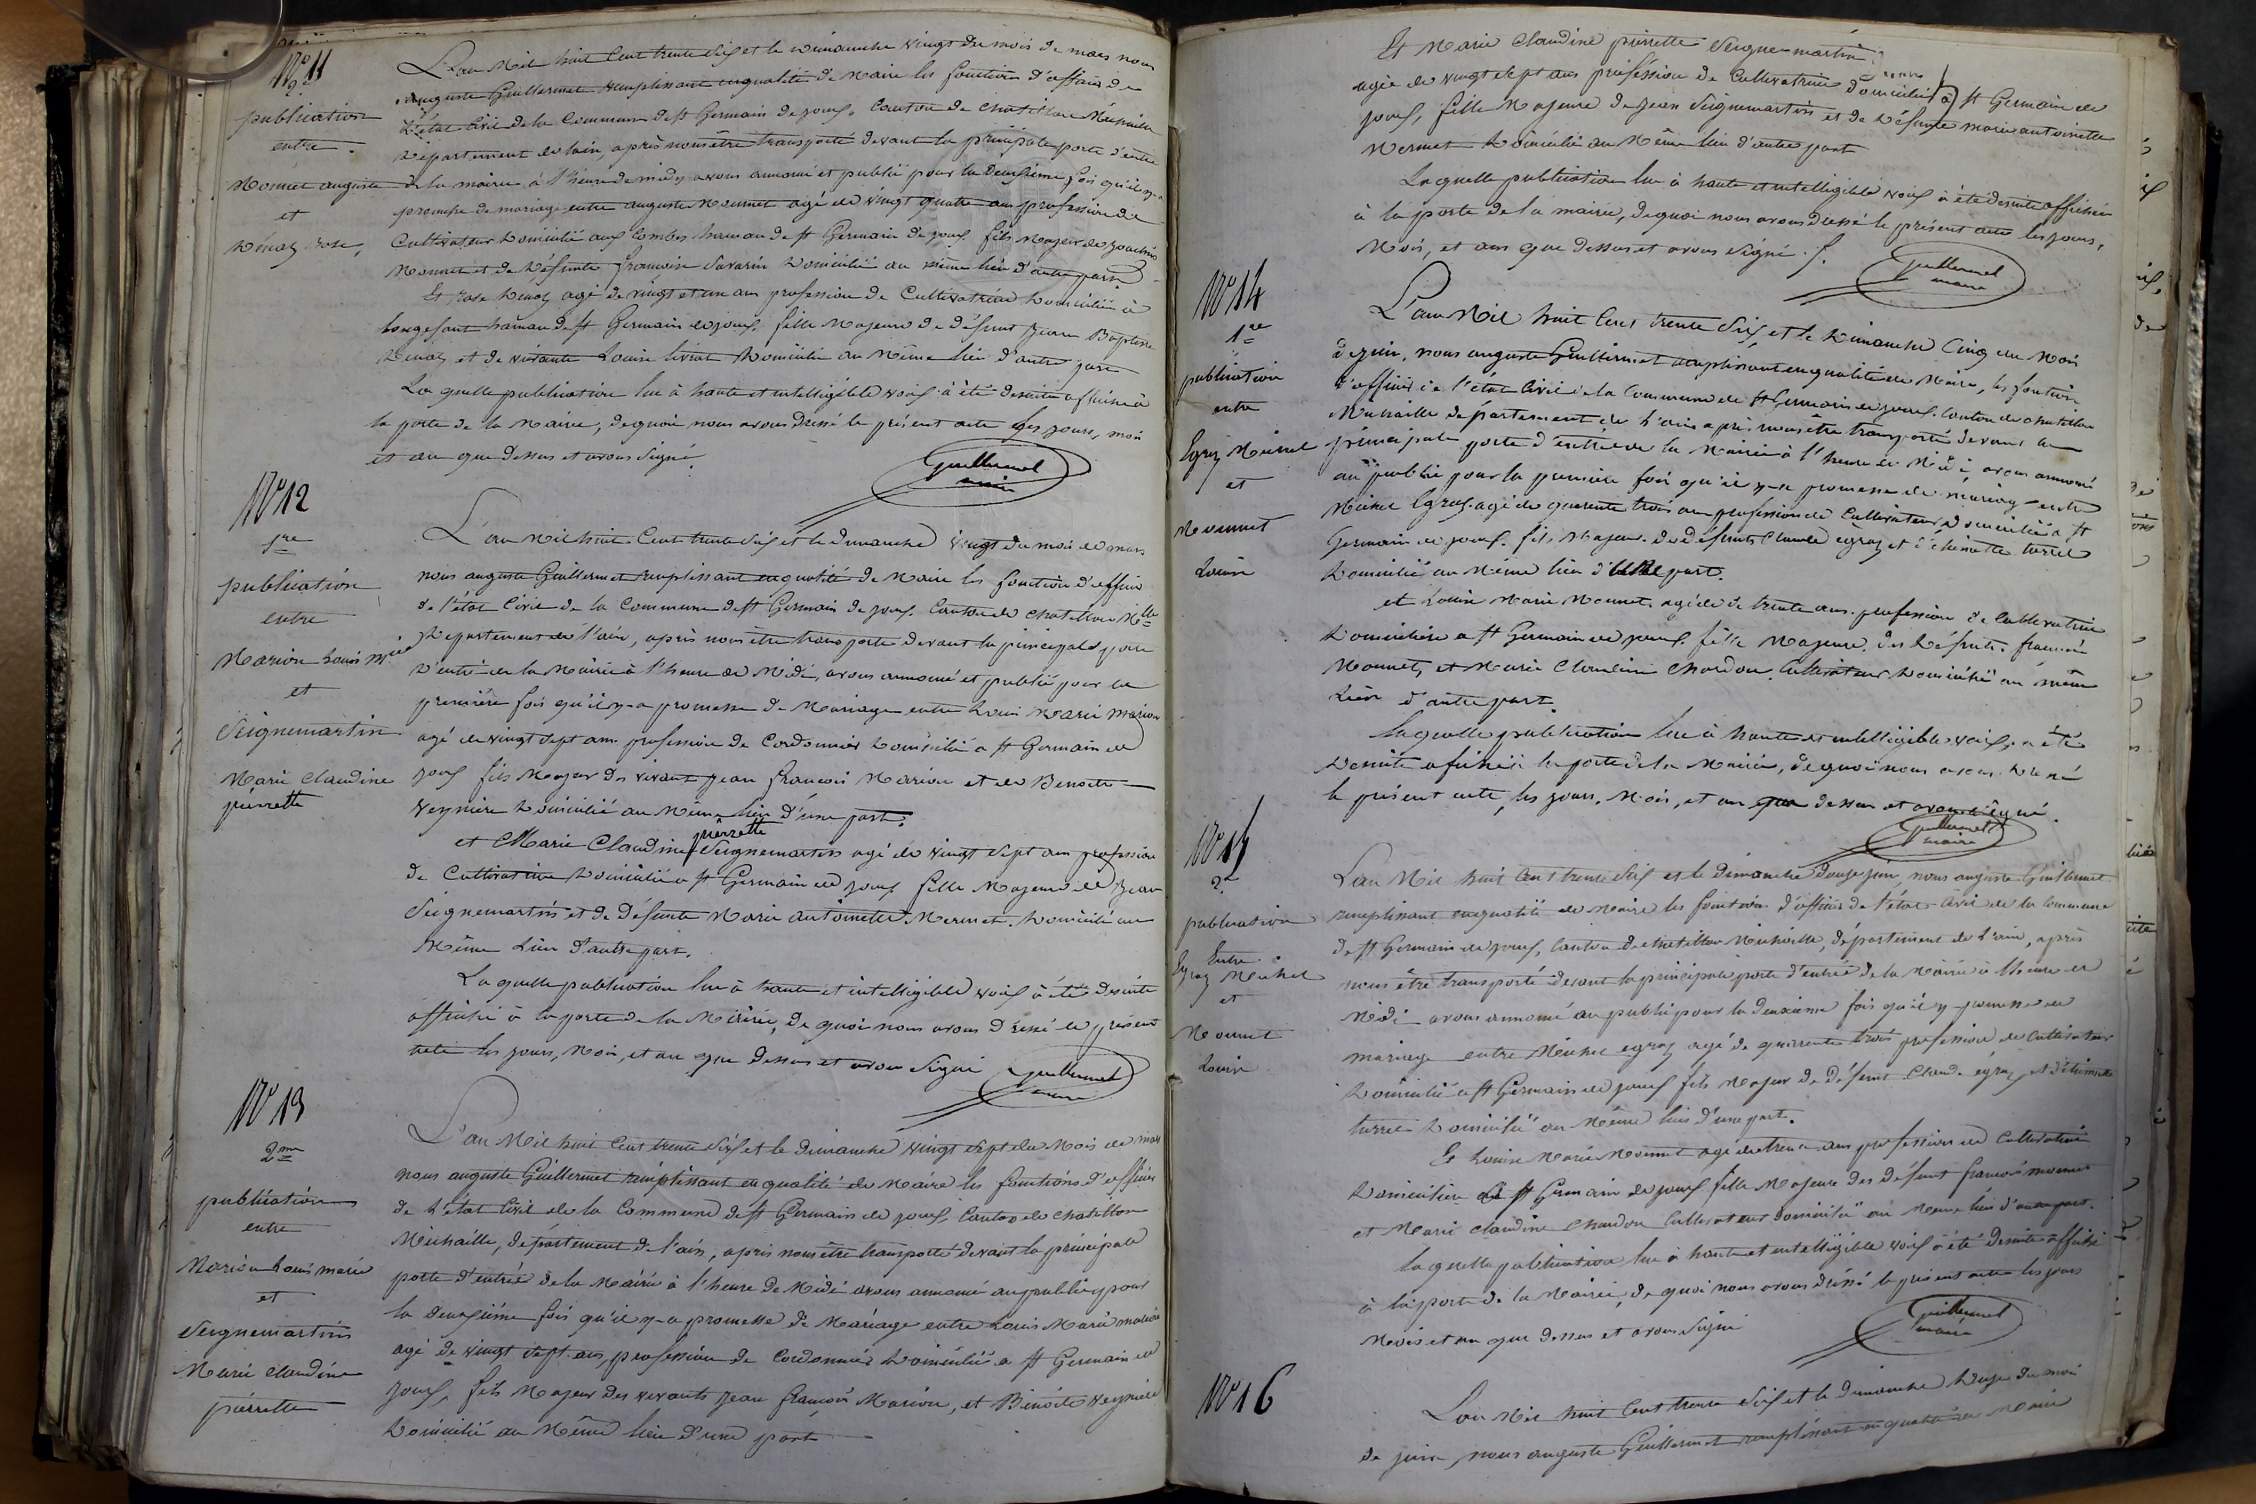 N° 11
2e
publication
entre
Monnet auguste
et
Ducroz rose,
L'an Mil huit Cent trente Six et le dimanche vingt du mois de mars nous
auguste Guillermet remplissant en qualité de Maire les fonctions d'officier de
L'état Civil de la Commune de St Germain de joux, Canton de Chatillon Michaille
Département de lain, après nous être transporté devant la principale porte d'entrée
de la mairie à l'heure de midy avons annoncé et publié pour la deuxième fois qu'il y a
promesse de mariage entre auguste Monnet agé de vingt quatre ans profession de
Cultivateur Domicilié aux Combes hamau de St Germain de joux fils Majeur de joachim
Monnet et de Défunte françoise Savarin Domicilié au même lieu d'autre part
Et rose agé de vingt et un ans profession de Cultivatrice Domiciliée à
longefant hamau de St Germain de joux, fille Majeure de défunt jean Baptiste
et de vivante Louise Domicilié au Même lieu d'autre part
La quelle publication lue à haute et intelligible voix à été desuite affichée à
la porte de la Mairie, de quoi nous avons Dressé le présent acte les jours, moi
et an que dessus et avons Signé.
Guillermet
maire
N° 12
1re
publication
entre
Marion Louis Mrie
et
Seignemartin
Marie Claudine
pierrette
L'an Mil huit Cent trente Six et le dimanche vingt du mois de mars
nous auguste Guillermet remplissant en qualité de Maire les fonction d'officier
de l'état Civil de la Commune de St Germain de joux, Canton de Chatillon Mlle
Département de l'ain, après nous être transporté devant la principale porte
d'entrée de la Mairie à l'heure de Midi, avons annoncé et publié pour la
première fois qu'il y a promesse de Mariage entre Louis Marie Marion
agé de vingt sept ans profession de Cordonnier Domicilié a St Germain de
joux fils Majeur des vivant jean françois Marion et de Benoite
veyniere Domicilié au Même lieu d'une part.
et Marie Claudine pierrette Seignemartin agé de vingt sept ans profession
de Cultivatrice Domiciliée a St Germain de joux fille Majeure de jean
Seignemartin et de Défunte Marie antoinette Mermet Domicilié au
Même Lieu d'autre part.
La quelle publication lue à haute et intelligible voix à été desuite
affiché à la porte de la Mairie, de quoi nous avons dressé le présent
acte les jours, Mois, et an que dessus et avons Signé
Guillermet
maire
N° 13
2me
publication
entre
Marion Louis marie
et
Seignemartin
Marie Claudine
pierrette
L'an Mil huit Cent trente Six et le dimanche vingt sept du Mois de mars
nous auguste Guillermet remplissant en qualité de Maire les fonctions d'officier
de L'état Civil de la Commune de St Germain de joux, Canton de chatillon
Michaille, département de l'ain, après nous être transporté devant la principale
porte d'entrée de la Mairie à l'heure de Midi avons annoncé au public pour
la deuxième fois qu'il y a promesse de Mariage entre Louis Marie marion
agé de vingt sept ans, profession de Cordonnier Domicilié a St Germain de
joux, fils Majeur des vivants jean françois Marion, et Bénoite veyniere
Domicilié au Même lieu d'une part
Et Marie Claudine pierrette Seignemartin
agée de vingt sept ans profession de Cultivatrice domiciliée à St Germain de
joux, fille Majeure de jean Seignemartin et de Défunte marie antoinette
Mermet Domicilié au Même lieu d'autre part
La quelle publication lue à haute et intelligible voix à été desuite affichée
à la porte de la mairie, de quoi nous avons dressé le présent acte les jours,
Mois, et ans que dessus et avons Signé.
Guillermet
maire
N° 14
1re
publication
entre
Egroz Michel
et
Monnet
Louise
L'an Mil huit Cent trente Six, et le dimanche Cinq du Mois
de juin, nous auguste Guillermet remplissant en qualité de Maire, les fonction
d'officier de l'état Civil de la Commune de St Germain de joux. Canton de chatillon
Michaille département de l'ain après nous être transporté devant la
principale porte d'entrée de la Mairie à l'heure de Midi avons annoncé
au publié pour la première fois qu'il y a promesse de mariage entre
Michel Egroz agé de quarente trois ans profession de Cultivateur, Domicilié a St
Germain de joux. fils Majeur de défunts Claude egroz et d'étiennette
Domicilié au Même lieu d'une part.
et Louise Marie Monnet agée de trente ans profession de Cultivatrice
Domiciliée a St Germain de joux. fille Majeure, des Défunts francois
Monnet, et Marie Claudine Chardon Cultivateur Domicilié au même
Lieu d'autre part.
Laquelle publication lue à haute et intelligible voix, a été
desuite afiché à la porte de la Mairie, de quoi nous avons Dressé
le présent acte, les jours, Mois, et an que dessus et avons Signé.
Guillermet
maire
N° 15
2e
publication
Entre
Egroz Michel
et
Monnet
Louise
L'an Mil huit Cent trente Six et le dimanche douze juin, nous auguste Guillermet
remplissant en qualité de Maire les fonction d'officier de l'état Civil de la Commune
de St Germain de joux, Canton de chatillon Michaille, département de l'ain, après
nous être transporté devant la principale porte d'entrée de la Mairie à l'heure de
Midi avons annoncé au public pour la deuxième fois qu'il y promesse de
mariage entre Michel egroz agé de quarente trois profession de Cultivateur
Domicilié a St Germain de joux fils Majeur de Défunt Claude égroz et d'étiennette
Domicilié au Même lieu d'une part.
Et Louise Marie Monnet agé de trente ans profession de Cultivatrice
Domiciliée a St Germain de joux fille Majeure des Défunt francois monnet
et Marie Claudine Chardon Cultivateur domicilié au Meme lieu d'autre part.
la quelle publication lue à haute et intelligible voix à été desuite affiché
à la porte de la Mairie, de quoi nous avons dressé le présent acte les jours
Mois et an que dessus et avons Signé
Guillermet
maire
N° 16
L'an Mil huit Cent trente Six et le dimanche Douze du moi
de juin, nous auguste Guillermet remplissant en qualité de Maire